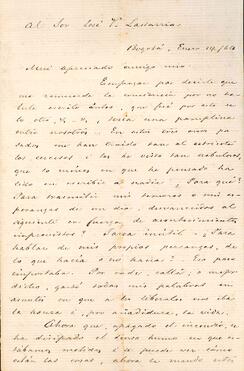 Al Sor José V. Lastarria
Bogotá, Enero 14/64
Mui apreciado amigo mio.
Empezar por decirle que
me remuerde la conciencia por no ha-
berle escrito antes, que fué por esto
lo otro, &, &, seria una pamplina
entre nosotros. En estos tres años pa-
sados me han traido tan al estricote
los sucesos i los he visto tan nebulosos,
que lo ménos en que he pensado ha
sido en escribir a nadie. ¿Para qué?
¿Para trasmitir mis temores i mis es-
peranzas de un dia, desmentidos al
siguiente a fuerza de acontecimientos
imprevistos? Tarea inútil. ¿Para
hablar de mis propias percances, de
lo que hacia o no hacia? Eso poco
importaba. Por ende, callé, o mejor
dicho, gasté todas mis palabras en
asuntos en que a los liberales nos iba
la honra i, por añadidura, la vida.
Ahora que, apagado el incendio, se
ha disipado el denso humo en que es-
tábamos metidos i se puede ver cómo
están las cosas, ahora es cuando estoi